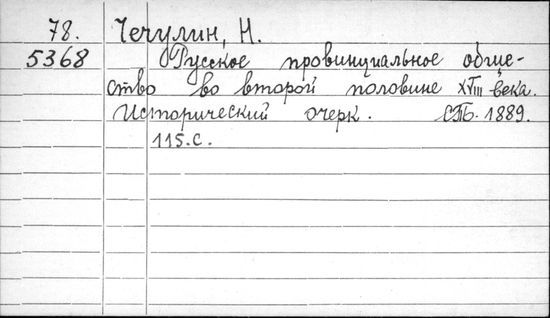 78. Чечулин, Н.
5368 Русское провинциальное обще-
ство во второй половине XVIII века.
Исторический очерк. СПБ. 1889.
115.с.